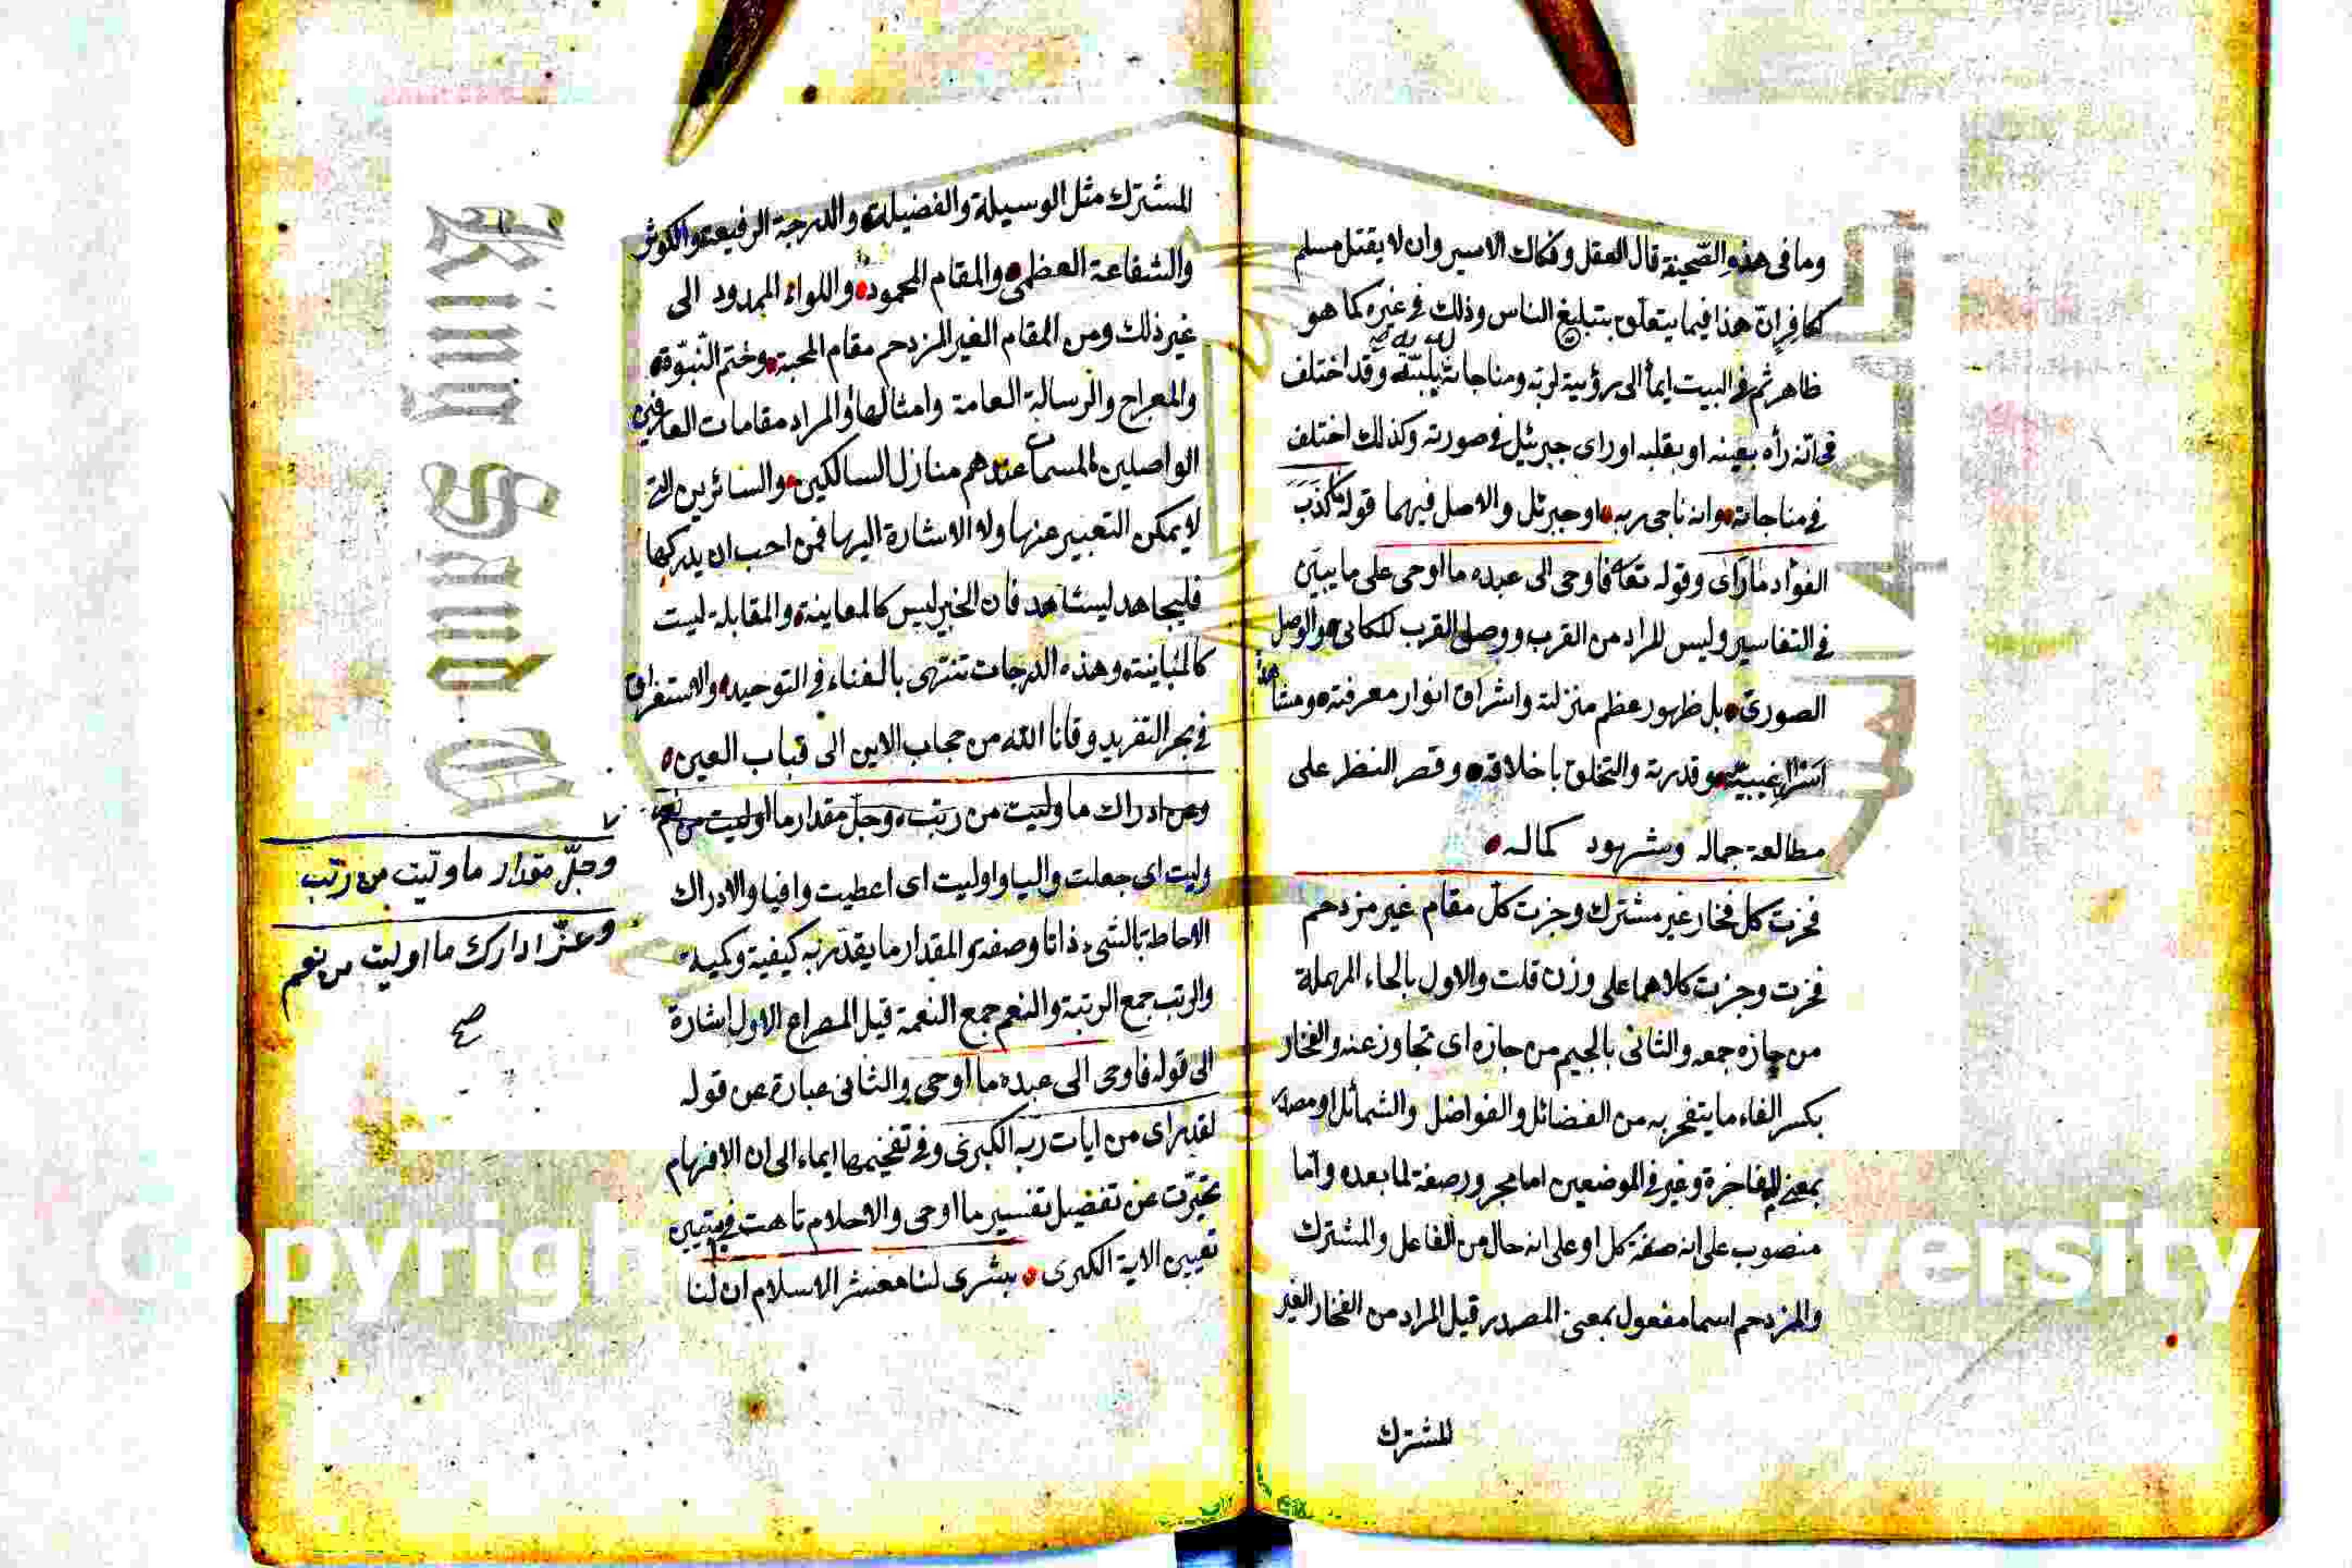 وما فى هذه الصحيفة قال العقل وفكاك الاسير وان لا يقتل مسلم
كافر ان هذا فيما يتعلق بتبليغ الناس وذلك فى غيره كما هو
ظاهر ثم فى البيت ايما الى رؤية لربه ومناجاته وقد اختلف
فى انه رأه بعينه او بقلبه او راى جبرئيل فى صورته وكذلك اختلف
فى مناجاته وانه ناجى ربه او جبرئل والاصل فيهما قوله ما كذب
الفؤاد ما راى وقوله تعا فاوحى الى عبده ما اوحى على ما يبين
فى التفاسير وليس المراد من القرب ووصل القرب المكانى والوصل
الصورى بل ظهور عظم منزلته واشراق انوار معرفته ومشاهدة
اسرار غيبيته وقدرته والتخلق باخلاقه وقصر النظر على
مطالعة جماله وشهود كماله
فحزت كل فخار غير مشترك وجزت كل مقام غير مزدحم
فحزت وجزت كلاهما على وزن قلت والاول بالحاء المهملة
من حازه جمعه والثانى بالجيم من جازه اى تجاوز عنه والفخار
بكسر الفاء ما يتفخر به من الفضائل والفواضل والشمائل او مصدر
بمعنى المفاخرة وغير فى الموضعين اما مجرور صفة لما بعده واما
منصوب على انه صفة كل او على انه حال من الفاعل والمشترك
والمزدحم اسما مفعول بمعنى المصدر قيل المراد من الفخار الغير
المشترك
المشترك مثل الوسيلة والفضيلة والدرجة الرفيعة والكوثر
والشفاعة العظمى والمقام المحمود واللواء الممدود الى
غير ذلك ومن المقام الغير المزدحم مقام المحبة وختم النبوة
والمعراج والرسالة العامة وامثالها والمراد مقامات العارفين
الواصلين المسمات عندهم منازل السالكين والسائرين التى
لا يمكن التعبير عنها ولا الاشارة اليها فمن احب ان يدركها
فليجاهد ليشاهد فان الخبر ليس كالمعاينة والمقابلة ليست
كالمباينة وهذه الدرجات تنتهى بالفناء فى التوحيد والاستغراق
فى بحر التفريد وقانا الله من حجاب الاين الى قباب العين
وعز ادراك ما وليت من رتب وجل مقدار ما اوليت من نعم
وليت اى جعلت واليا واوليت اى اعطيت وافيا والادراك
الاحاطة بالشىء ذاتا وصفة والمقدار ما يقدر به كيفية وكمية
والرتب جمع الرتبة والنعم جمع النعمة قيل المصراع الاول اشارة
الى قوله فاوحى الى عبده ما اوحى والثانى عبارة عن قوله
لقد راى من ايات ربه الكبرى وفى تفخيمها ايماء الى ان الافهام
تحيرت عن تفضيل تفسير ما اوحى والاحلام تاهت فى تبيين
تعيين الاية الكبرى بشرى لنا معشر الاسلام ان لنا
وجل مقدار ما وليت من رتب
وعز ادارك ما اوليت من نعم
صح
King Saud
Copyrigh
versity